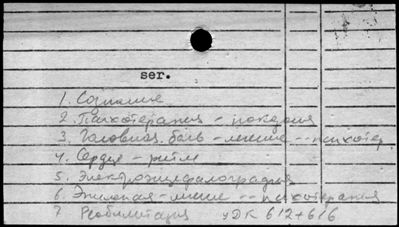 ser.
1. Сознание
2. Психотерапия –
3. Головная боль – лечение -- психотер.
4. Сердце – ритм
5. Электроэнцефалография
6. Эпилепсия – лечение -- психотерапия
7 Реабилитация УДК 612+616